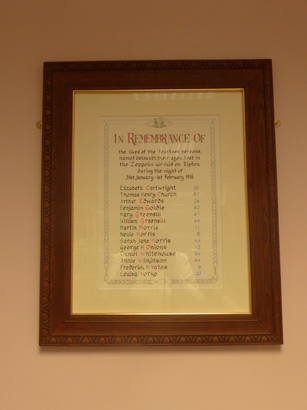 In Remembrance Of
the lives of the fourteen persons
named below with their ages, lost in
the Zeppelin air raid on Tipton
during the night of
31st January-1st February 1916
Elizabeth Cartwright
Thomas Henry Church
Arthur Edwards 26
Benjamin Goldie
Mary Greensill
William Greensill
Martin Morris 11
Nellie Morris 8
Sarah Jane Morris 44
George H Onions
Daniel Whitehouse
Annie Wilkinson 44
Frederick N Yates 9
Louisa York 30